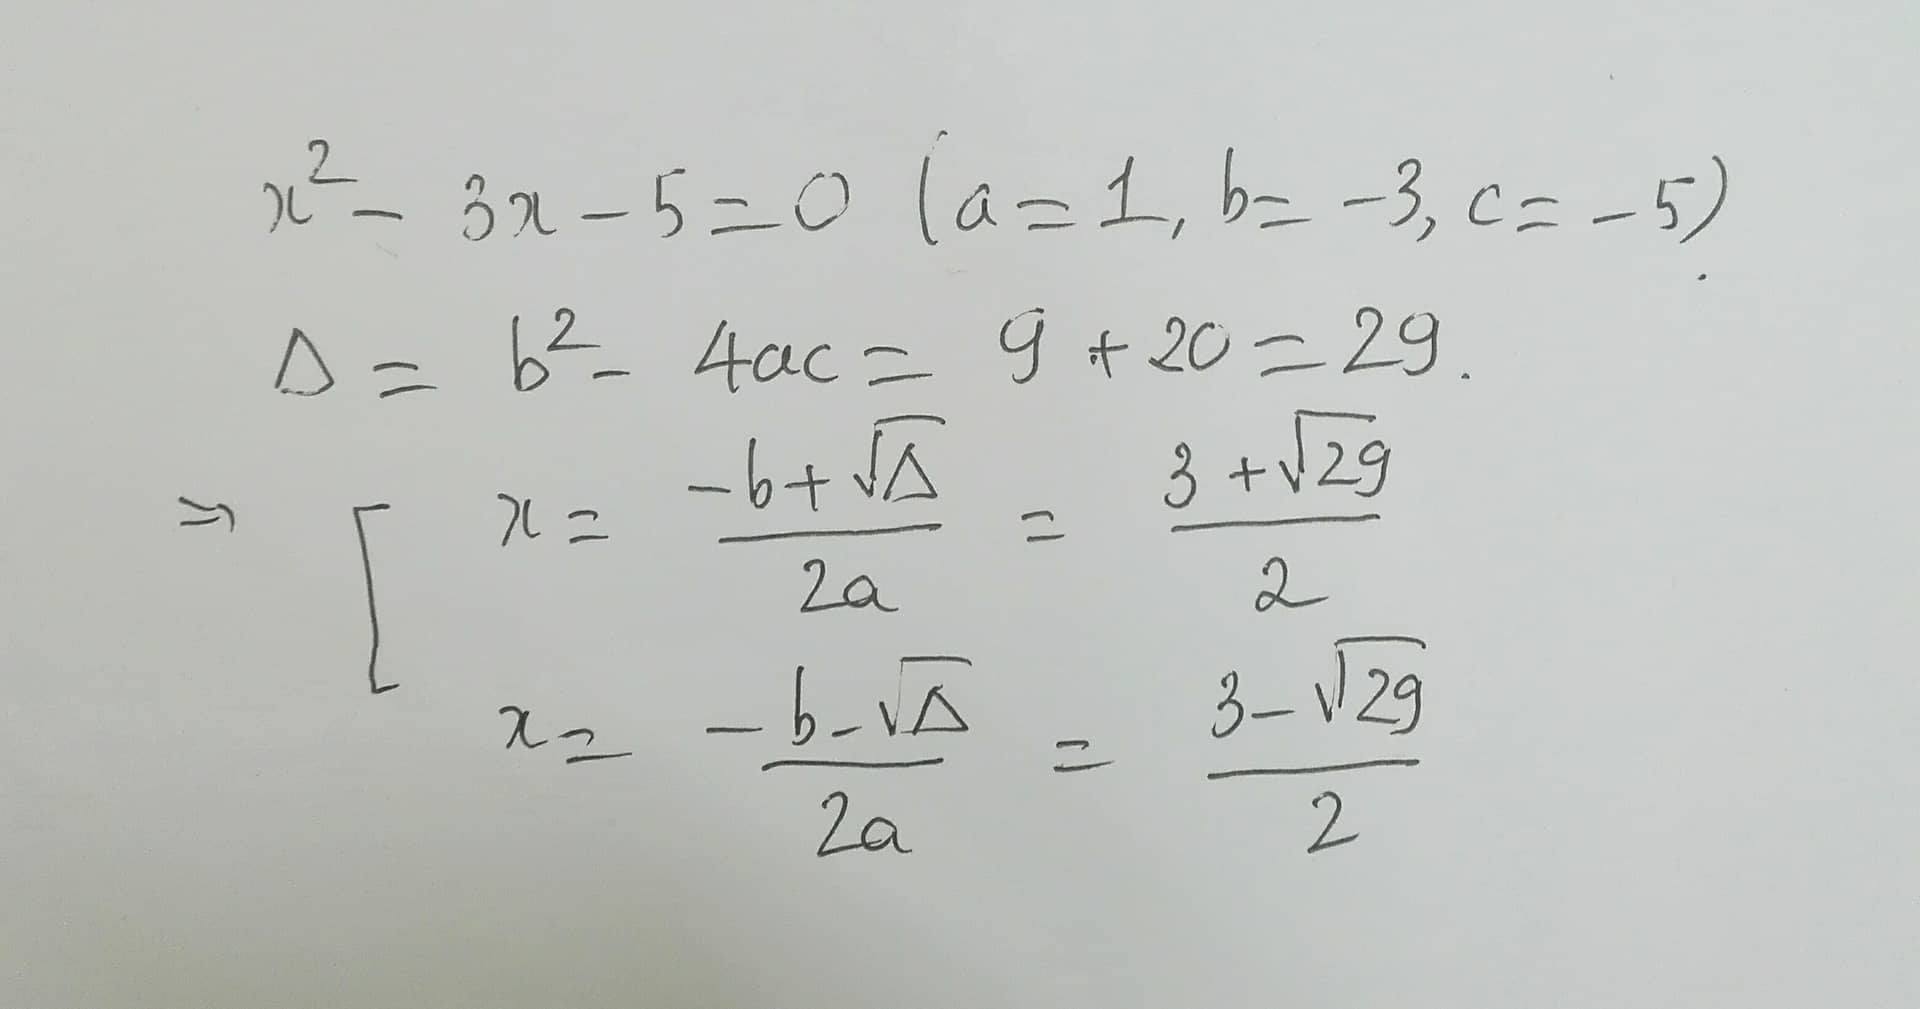 x² - 3x - 5 = 0 (a = 1, b = -3, c = -5).
Δ = b² - 4ac = 9 + 20 = 29.
⇒ [ x = (-b + √Δ)/(2a) = (3 + √29)/2
x = (-b - √Δ)/(2a) = (3 - √29)/2